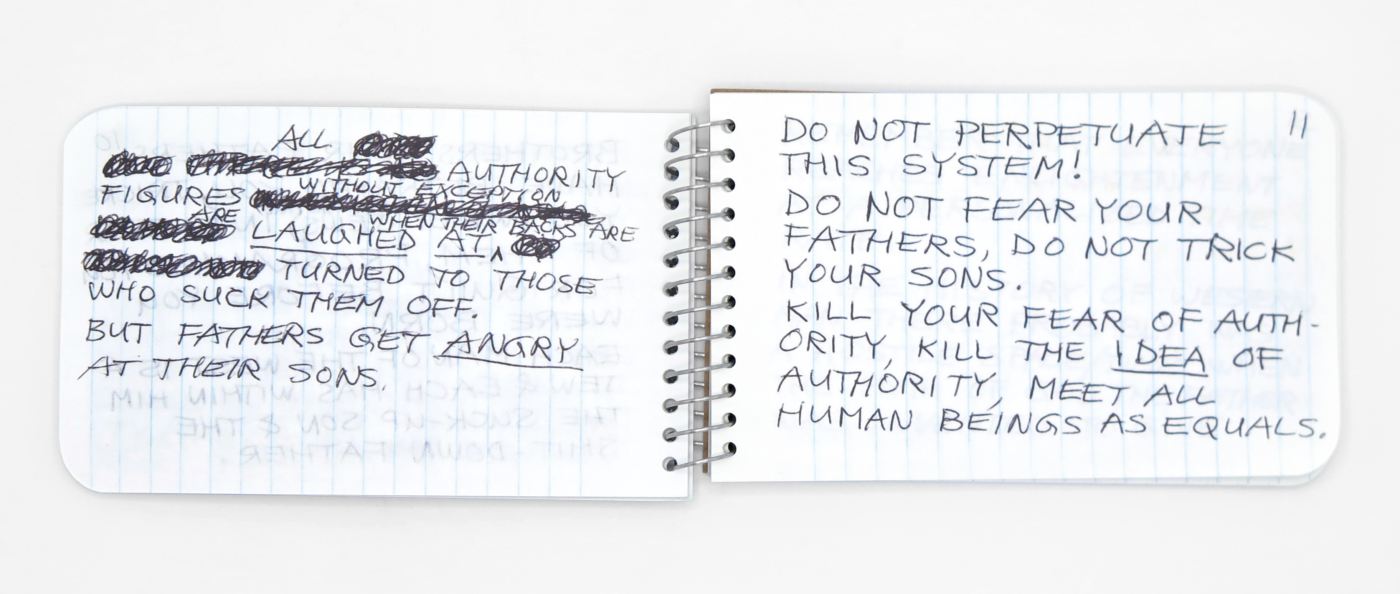 ALL
AUTHORITY
FIGURES WITHOUT EXCEPTION
ARE LAUGHED AT WHEN THEIR BACKS ARE
TURNED TO THOSE
WHO SUCK THEM OFF.
BUT FATHERS GET ANGRY
AT THEIR SONS.
11
DO NOT PERPETUATE
THIS SYSTEM!
DO NOT FEAR YOUR
FATHERS, DO NOT TRICK
YOUR SONS.
KILL YOUR FEAR OF AUTH-
ORITY, KILL THE IDEA OF
AUTHORITY, MEET ALL
HUMAN BEINGS AS EQUALS.